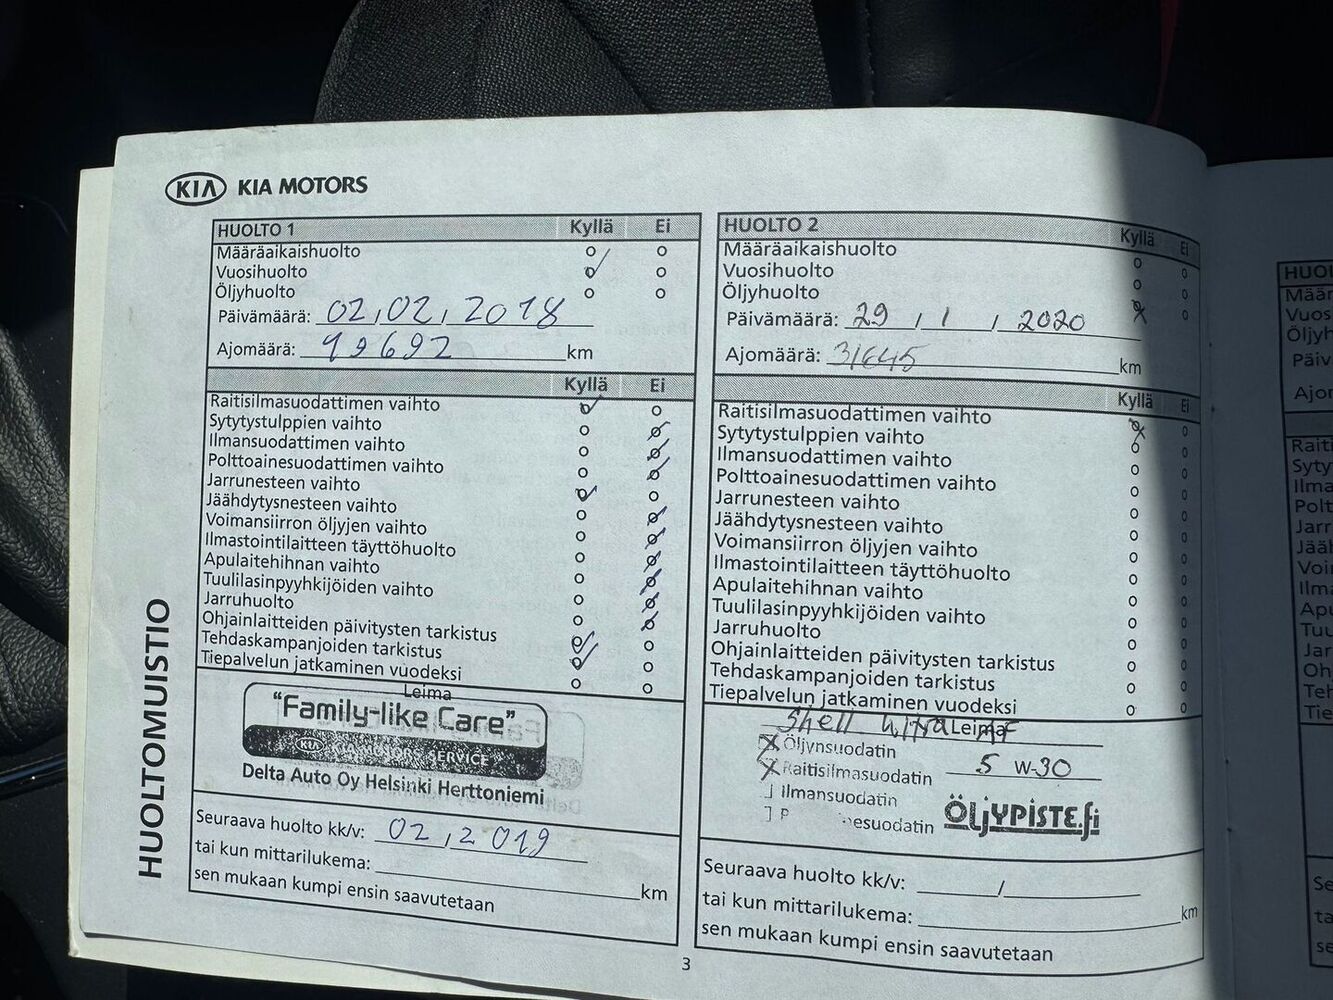 KIA KIA MOTORS
HUOLTOMUISTIO
HUOLTO 1 Kyllä Ei
Määräaikaishuolto
Vuosihuolto
Öljyhuolto
Päivämäärä: 02,02,2018
Ajomäärä: 19692 km
Kyllä Ei
Raitisilmasuodattimen vaihto
Sytytystulppien vaihto
Ilmansuodattimen vaihto
Polttoainesuodattimen vaihto
Jarrunesteen vaihto
Jäähdytysnesteen vaihto
Voimansiirron öljyjen vaihto
Ilmastointilaitteen täyttöhuolto
Apulaitehihnan vaihto
Tuulilasinpyyhkijöiden vaihto
Jarruhuolto
Ohjainlaitteiden päivitysten tarkistus
Tehdaskampanjoiden tarkistus
Tiepalvelun jatkaminen vuodeksi
Leima
"Family-like Care"
KIA KIA MOTORS SERVICE
Delta Auto Oy Helsinki Herttoniemi
Seuraava huolto kk/v: 02,2019
tai kun mittarilukema: km
sen mukaan kumpi ensin saavutetaan
HUOLTO 2 Kyllä Ei
Määräaikaishuolto
Vuosihuolto
Öljyhuolto
Päivämäärä: 29 / 1 / 2020
Ajomäärä: 31645 km
Kyllä Ei
Raitisilmasuodattimen vaihto
Sytytystulppien vaihto
Ilmansuodattimen vaihto
Polttoainesuodattimen vaihto
Jarrunesteen vaihto
Jäähdytysnesteen vaihto
Voimansiirron öljyjen vaihto
Ilmastointilaitteen täyttöhuolto
Apulaitehihnan vaihto
Tuulilasinpyyhkijöiden vaihto
Jarruhuolto
Ohjainlaitteiden päivitysten tarkistus
Tehdaskampanjoiden tarkistus
Tiepalvelun jatkaminen vuodeksi
Shell Ultra Leima
Öljynsuodatin
Raitisilmasuodatin 5 W-30
Ilmansuodatin
ÖLJYPISTE.fi
Seuraava huolto kk/v: /
tai kun mittarilukema: km
sen mukaan kumpi ensin saavutetaan
3